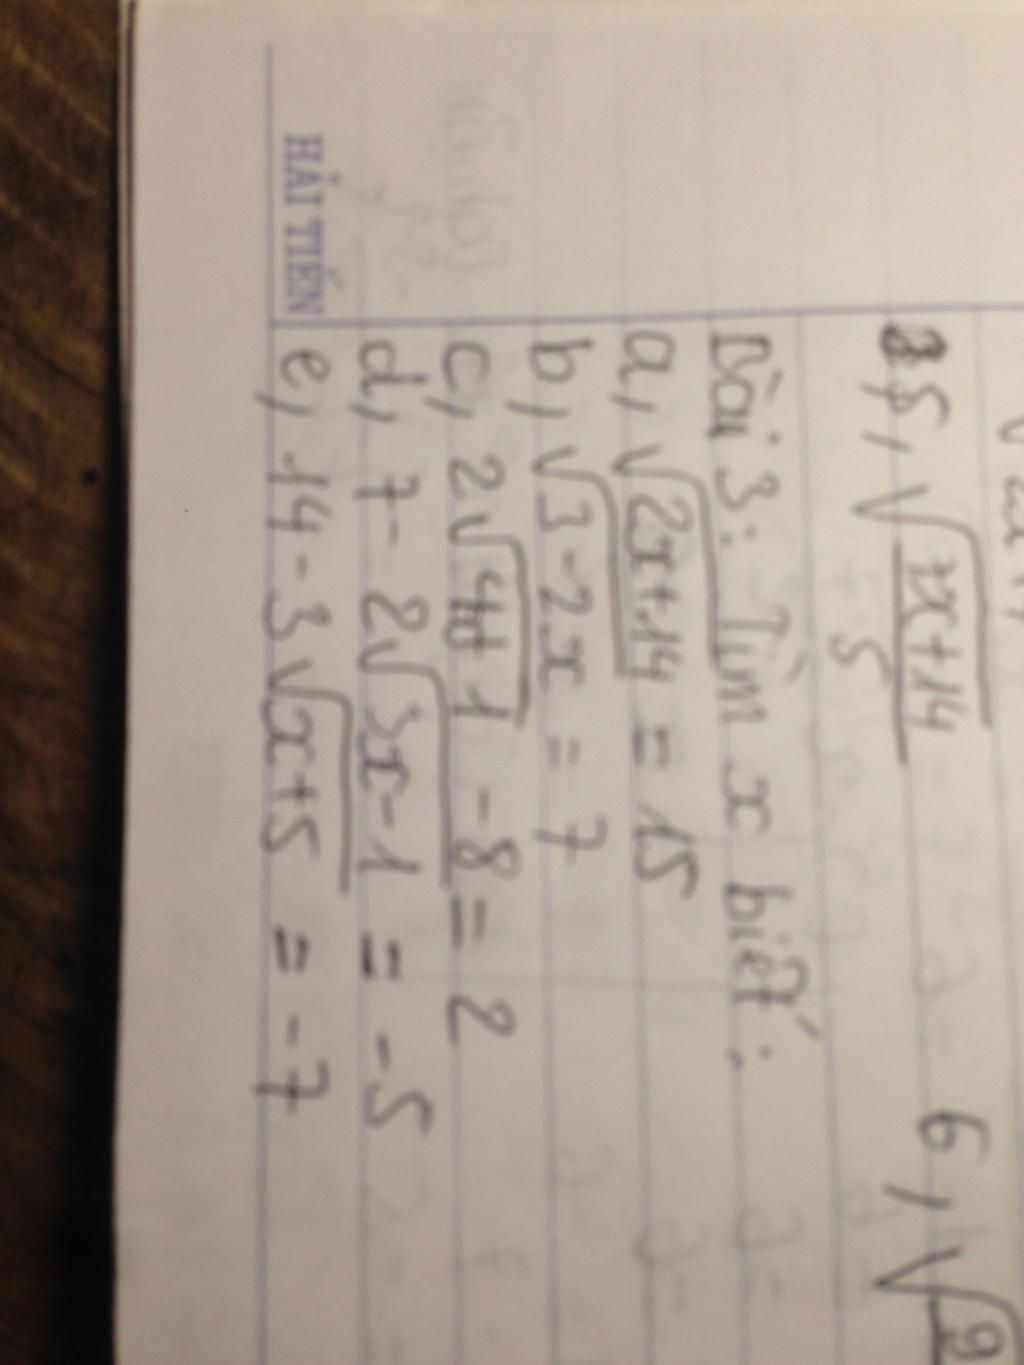 5, √(x+14)/5 6, √9
Bài 3: Tìm x biết:
a, √2x+14 = 15
b, √3-2x = 7
c, 2√4x+1 - 8 = 2
d, 7 - 2√3x-1 = -5
e, 14 - 3√x+5 = -7
HẢI TIẾN